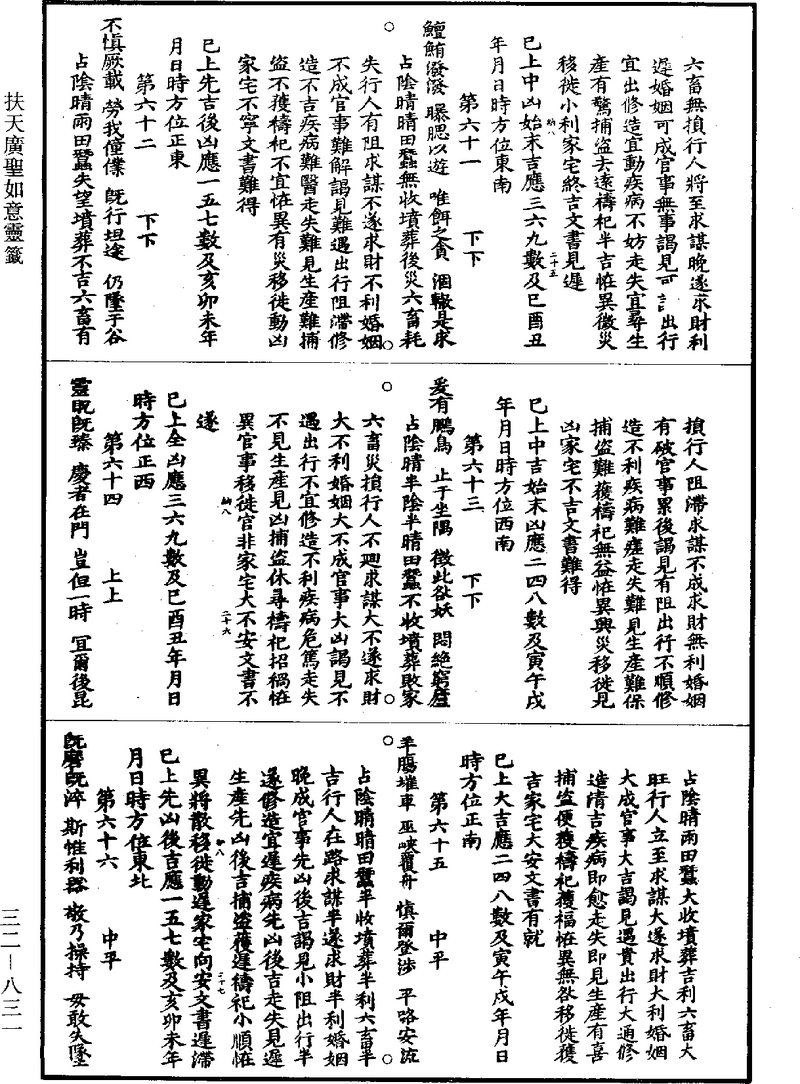 扶天廣聖如意靈籤
三二—八三一
六畜無損行人將至求謀晚遂求財利
遲婚姻可成官事無事謁見可 出行
宜出修造宜動疾病不妨走失宜尋生
產有驚捕盜去遠禱祀半吉恠異微災
移徙小利家宅終吉文書見遲
納八
二十五
已上中凶始末吉應三六九數及巳酉丑
年月日時方位東南
第六十一 下下
鱣鮪潑潑 曝腮以遊 唯餌之貪 涸轍是求
占陰晴晴田蠶無收墳葬後災六畜耗
失行人有阻求謀不遂求財不利婚姻
不成官事難解謁見難遇出行阻滯修
造不吉疾病難醫走失難見生產難捕
盜不獲禱祀不宜恠異有災移徙動凶
家宅不寧文書難得
已上先吉後凶應一五七數及亥卯未年
月日時方位正東
第六十二 下下
不慎厥載 勞我僮僕 旣行坦途 仍墜于谷
占陰晴雨田蠶失望墳葬不吉六畜有
損行人阻滯求謀不成求財無利婚姻
有破官事累後謁見有阻出行不順修
造不利疾病難瘥走失難見生產難保
捕盜難獲禱祀無益恠異興災移徙見
凶家宅不吉文書難得
已上中吉始末凶應二四八數及寅午戌
年月日時方位西南
第六十三 下下
爰有鵬鳥 止于坐隅 徵此欲妖 悶絕窮廬
占陰晴半陰半晴田蠶不收墳葬敗家
六畜災損行人不迴求謀大不遂求財
大不利婚姻大不成官事大凶謁見不
遇出行不宜修造不利疾病危篤走失
不見生產見凶捕盜休尋禱祀招禍恠
異官事移徙官非家宅大不安文書不
納八
二十六
遂
已上全凶應三六九數及巳酉丑年月日
時方位正西
第六十四 上上
靈貺旣臻 慶者在門 豈但一時 宜爾後昆
占陰晴雨田蠶大收墳葬吉利六畜大
旺行人立至求謀大遂求財大利婚姻
大成官事大吉謁見遇貴出行大通修
造清吉疾病即愈走失即見生產有喜
捕盜便獲禱祀獲福恠異無欲移徙獲
吉家宅大安文書有就
已上大吉應二四八數及寅午戌年月日
時方位正南
第六十五 中平
羊腸摧車 巫峽覆舟 慎爾登涉 平路安流
占陰晴晴田蠶半收墳葬半利六畜半
吉行人在路求謀半遂求財半利婚姻
晚成官事先凶後吉謁見小阻出行半
遂修造宜遲疾病先凶後吉走失見遲
生產先凶後吉捕盜獲遲禱祀小順恠
異將散移徙動遲家宅向安文書遲滯
納八
二十七
已上先凶後吉應一五七數及亥卯未年
月日時方位東北
第六十六 中平
旣磨旣淬 斯惟利器 敬乃操持 毋敢失墜